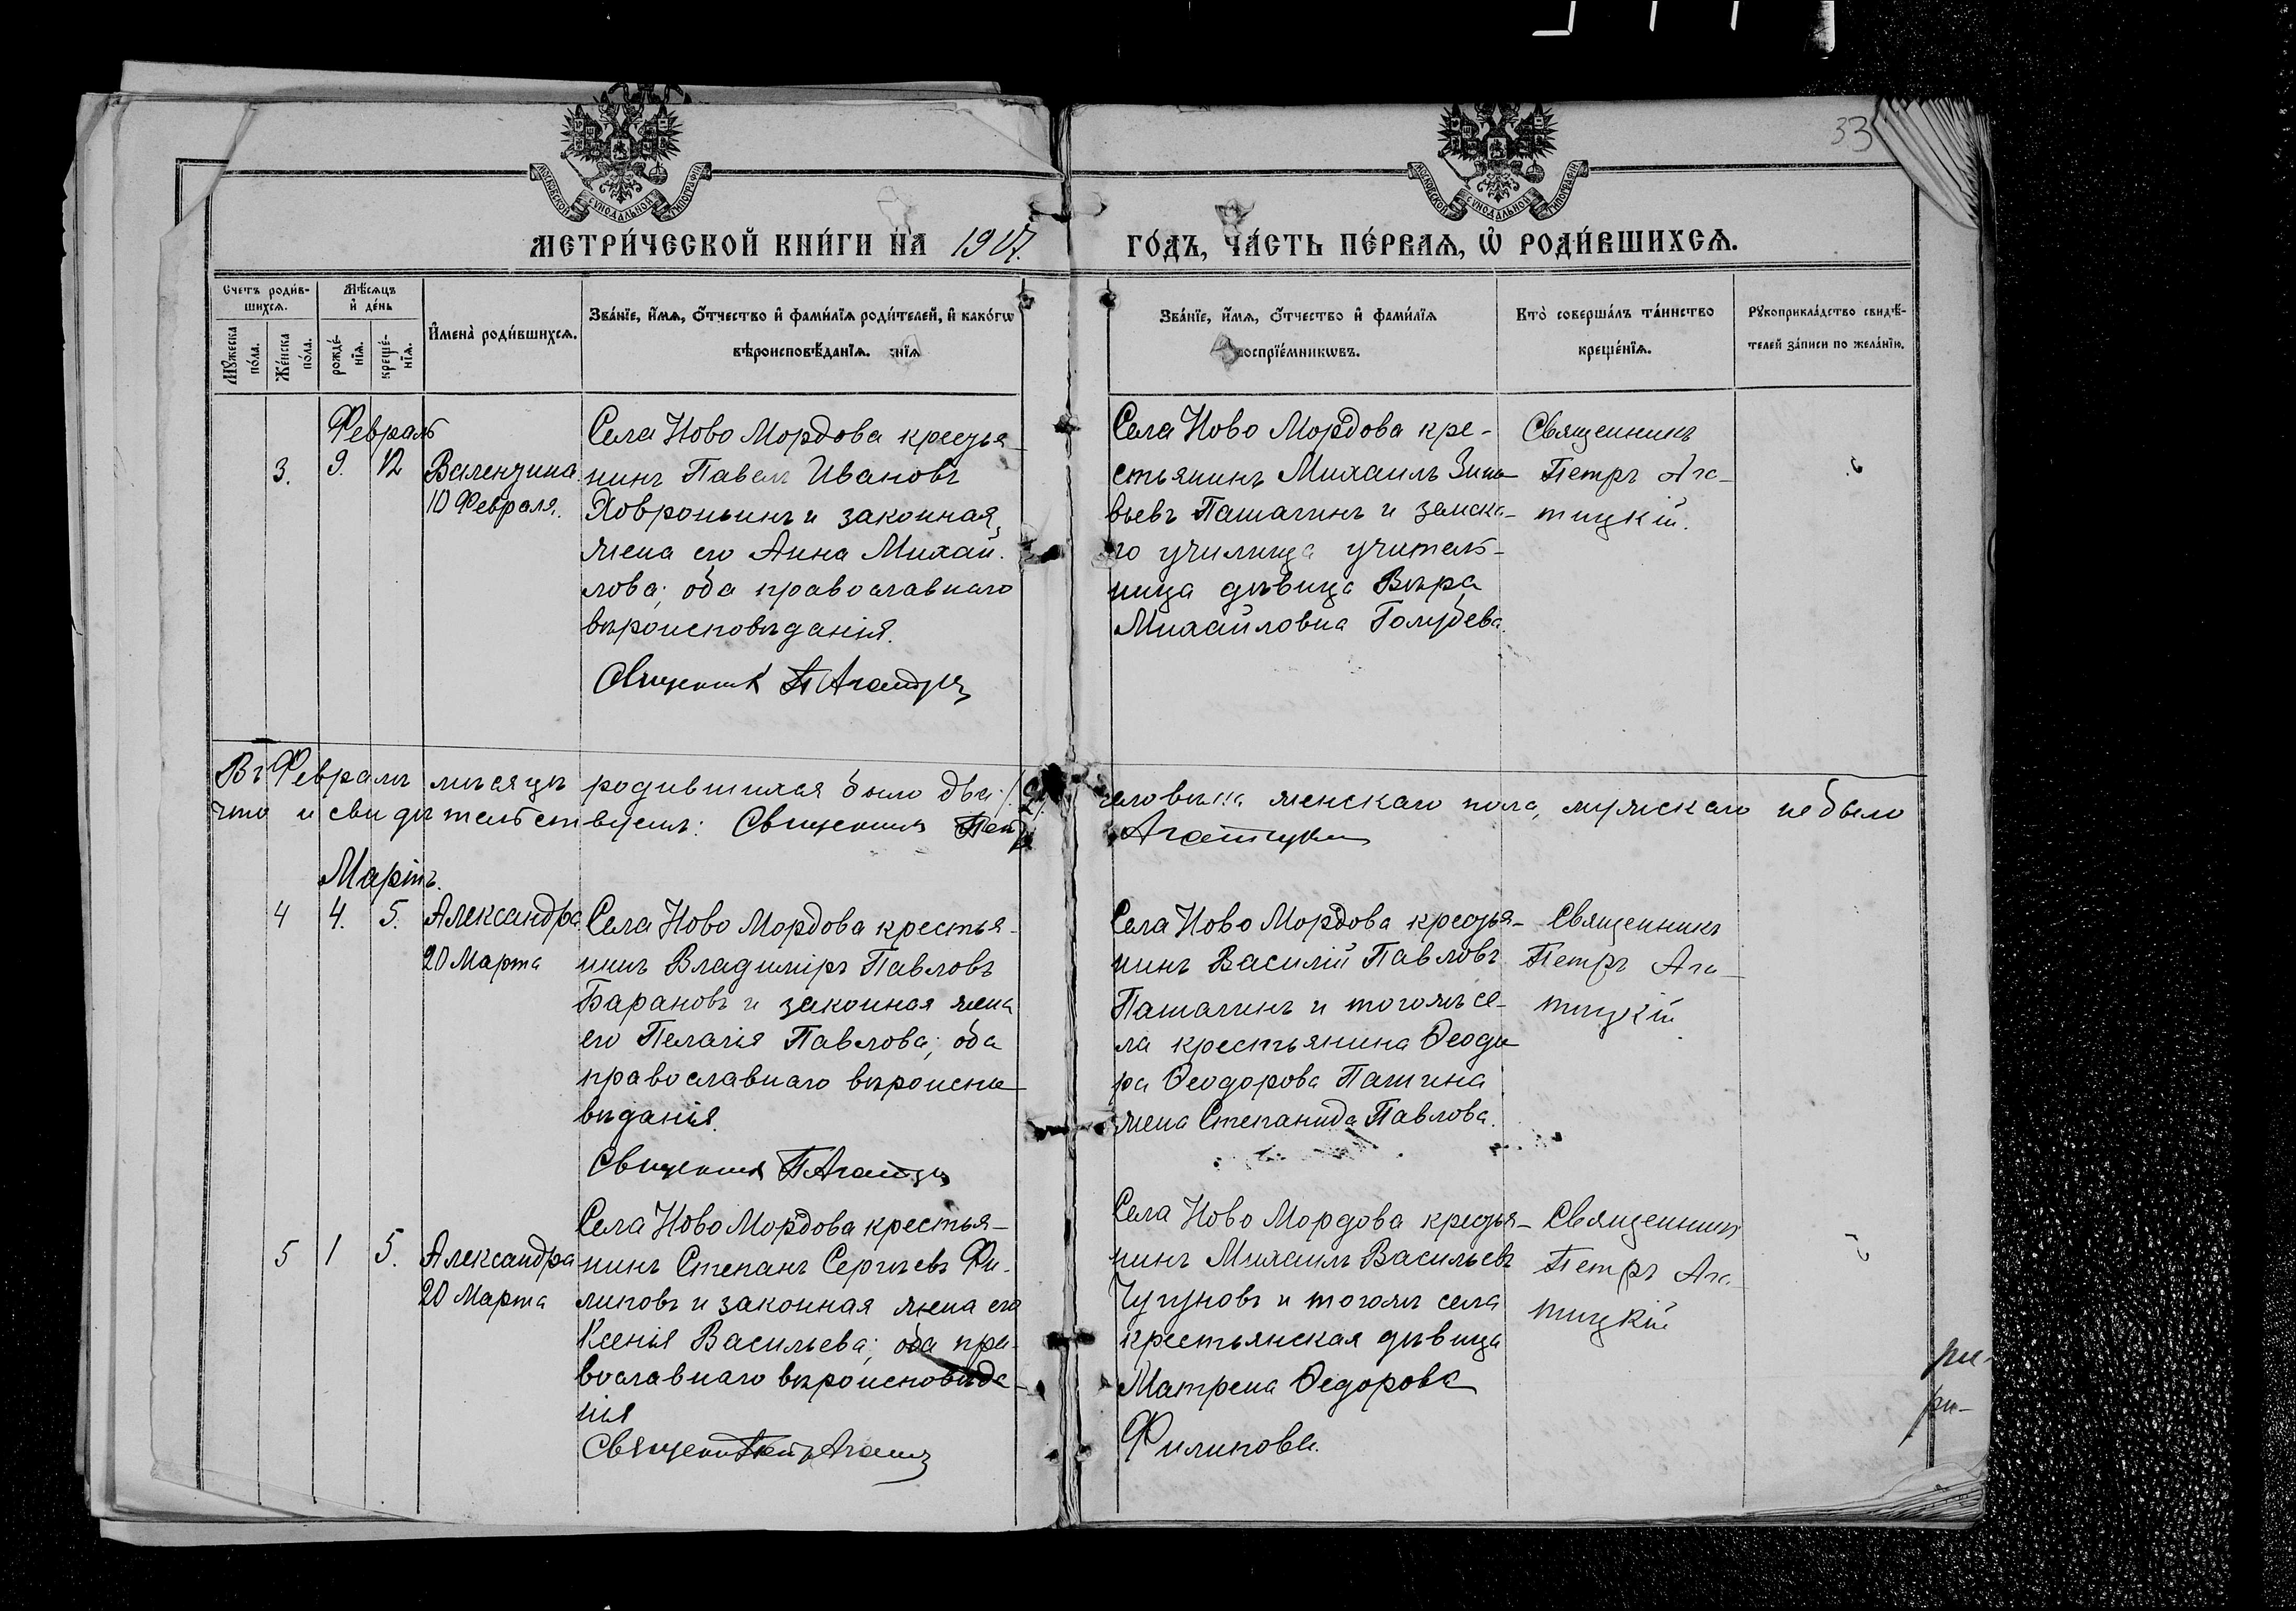 33
МОСКОВСКОЙ СУНОДАЛЬНОЙ ТИПОГРАФІИ
МОСКОВСКОЙ СУНОДАЛЬНОЙ ТИПОГРАФІИ
МЕТРИ́ЧЕСКОЙ КНИ́ГИ НА 1917.
ГО́ДЪ, ЧА́СТЬ ПЕ́РВАѦ, Ѡ РОДИ́ВШИХСѦ.
Счетъ роди́в-
шихсѧ.
Мѣсѧцъ
и де́нь
Мꙋжеска по́ла.
Же́нска по́ла.
рожде́-
нїѧ.
креще́-
нїѧ.
Имена̀ роди́вшихсѧ.
Зва́нїе, и́мѧ, о́тчество и фами́лїѧ роди́телей, и како́гѡ
вѣроисповѣ́данїѧ.
Зва́нїе, и́мѧ, о́тчество и фами́лїѧ
воспрїе́мникѡвъ.
Кто̀ соверша́лъ та́инство
креще́нїѧ.
Рꙋкоприкла́дство свидѣ́-
телей за́писи по жела́нїю.
Февраль
3. 9. 12 Валентина
10 Февраля.
Села Ново Мордова крестья-
нинъ Павелъ Ивановъ
Ховроньинъ и законная
жена его Анна Михай-
лова; оба православнаго
вѣроисповѣданія.
Священникъ П Агатицкій
Села Ново Мордова кре-
стьянинъ Михаилъ Зино-
вьевъ Пашагинъ и земска-
го училища учитель-
ница дѣвица Вѣра
Михайловна Голубева.
Священникъ
Петръ Ага-
тицкій.
Въ Февралѣ мѣсяцѣ родившихся было два /2/ человѣка женскаго пола, мужскаго не было
что и свидѣтельствуемъ: Священникъ Петръ Агатицкій
Мартъ.
4 4. 5. Александра
20 Марта
Села Ново Мордова крестья-
нинъ Владиміръ Павловъ
Барановъ и законная жена
его Пелагія Павлова; оба
православнаго вѣроиспо-
вѣданія.
Священникъ П Агатицкій
Села Ново Мордова крестья-
нинъ Василій Павловъ
Пашагинъ и тогожъ се-
ла крестьянина Ѳеодо-
ра Ѳеодорова Пашина
жена Степанида Павлова.
Священникъ
Петръ Ага-
тицкій.
5 1 5. Александра
20 Марта
Села Ново Мордова крестья-
нинъ Степанъ Сергѣевъ Фи-
липовъ и законная жена его
Ксенія Васильева; оба пра-
вославнаго вѣроисповѣда-
нія
Священникъ Петръ Агатицкій
Села Ново Мордова крестья-
нинъ Михаилъ Васильевъ
Чугуновъ и тогожъ села
крестьянская дѣвица
Матрена Ѳедорова
Филипова.
Священникъ
Петръ Ага-
тицкій